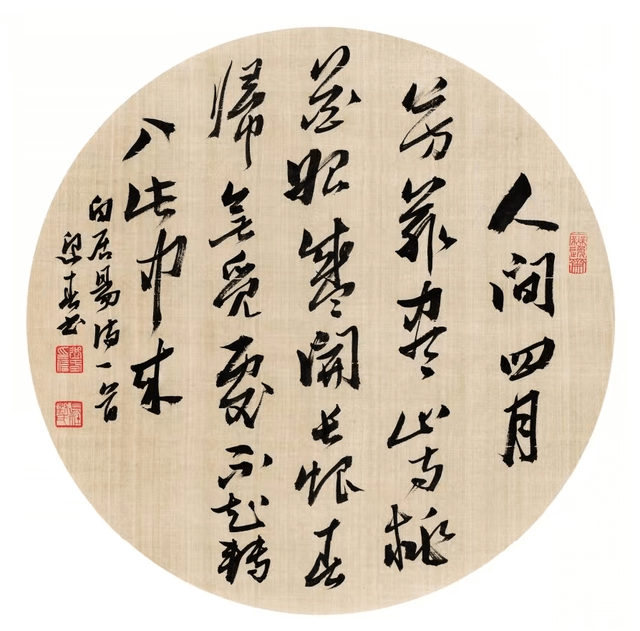 人間四月
芳菲盡山寺桃
花始盛開長恨春
歸無覓處不知轉
入此中來
白居易詩一首
梁春書